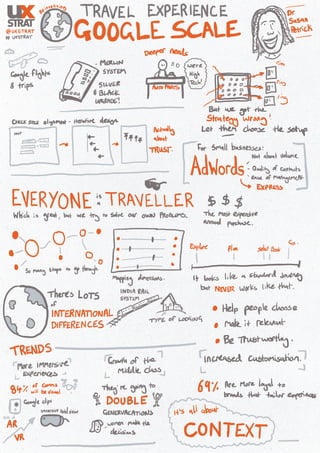 UX
STRAT
@UXSTRAT
# UXSTRAT
TRAVEL EXPERIENCE
GOOGLE SCALE
Dr
Susan
Patrick
Google flights
& trips
MERLIN
SYSTEM
SILVER
BLACK
Deeper needs
we're
High
Tech!
But we got the
Strategy Wrong
Let them choose the setup
Actually
about
TRUST
For Small businesses:
AdWords
Not about volume
Quality of contacts
ease of management
EXPRESS
EVERYONE IS A TRAVELLER
Which is great, but we try to solve our OWN PROBLEMS.
$ $ $
The most expensive
annual purchase.
So many steps to go through
Mapping dimensions.
Explore
Plan
It looks like a standard Journey
but NEVER works like that.
There's LOTS
of
INTERNATIONAL
DIFFERENCES
INDIA RAIL
SYSTEM
TYPE OF LOOKING
Help people choose
Make it relevant
Be Trustworthy.
TRENDS
"More immersive
experiences"
84%
Google clips
AR
VR
Growth of the
Middle class
They're going to
DOUBLE
women make the
decisions
Increased customisation.
69% Are more loyal to
brands that tailor experiences
It's all about
CONTEXT